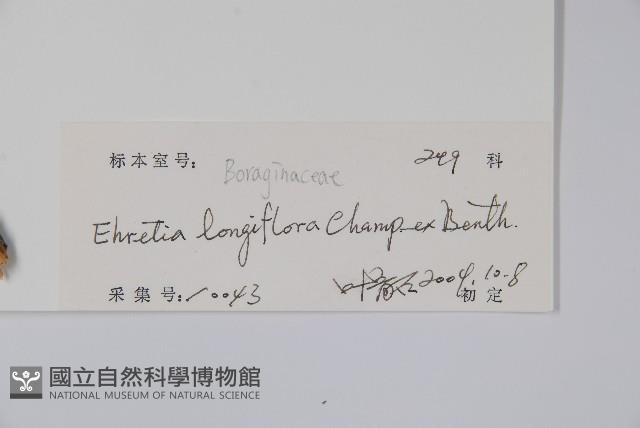 标本室号: 249 科
Boraginaceae
Ehretia longiflora Champ. ex Benth.
采集号: 10043 2004.10.8
初定
國立自然科學博物館
NATIONAL MUSEUM OF NATURAL SCIENCE